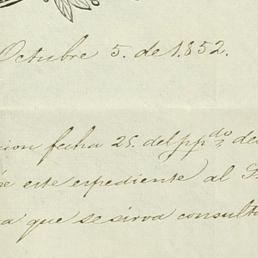 Octubre 5. de 1852.
cion fecha 25. del pp.do de
este espediente al
a que se sirva consulta